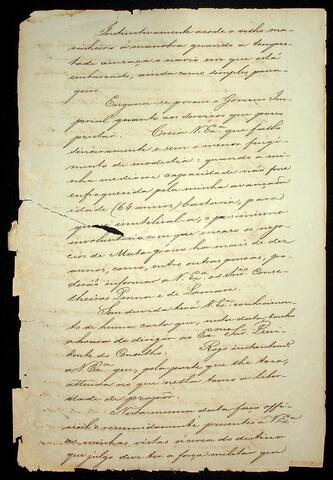 Instinctivamente acode o velho ma-
rinheiro á manobra quando a tempes-
tade ameaça o navio em que está
embarcado, ainda como simples passa-
geiro.
Engana-se porem o Governo Im-
perial quanto aos serviços que posso
prestar. Creia V. Exª que fallo
sinceramente e sem o menor fingi-
mento de modestia: quando a mi-
nha mediocre capacidade não fora
enfraquecida pela minha avançada
idade (64 annos) bastaria, para
inutilisal-a, o pessimismo
involuntario com que encaro os nego-
cios de Mato-grosso ha mais de dez
annos, como, entre outras pessoas, po-
derão informar a V. Exª os Snrs. Conse-
lheiros Penna e de Lamare.
Sem duvida terá V. Exª conhecimen-
to de huma carta que, nesta data, tenho
a honra de dirigir ao Exmo Snr. Presi-
dente do Conselho. Rogo instantemte
a V. Exª que, pela parte que lhe toca,
attenda ao que nella tomo a liber-
dade de propor.
Nesta mesma data faço offi-
cial e resumidamente presentes a V. Exª
as minhas vistas ácerca do destino
que julgo deve ter a força militar que